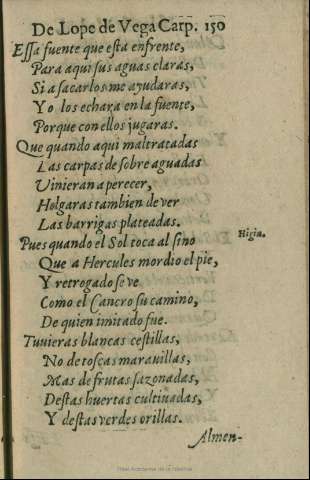 De Lope de Vega Carp. 150
Essa fuente que esta enfrente,
Para aqui sus aguas claras,
Si a sacarlos me ayudaras,
Yo los echara en la fuente,
Porque con ellos jugaras.
Que quando aqui maltratadas
Las carpas de sobre aguadas
Uinieran a perecer,
Holgaras tambien de ver
Las barrigas plateadas.
Pues quando el Sol toca al sino
Higin.
Que a Hercules mordio el pie,
Y retrogado se ve
Como el Cancro su camino,
De quien imitado fue.
Tuuieras blancas cestillas,
No de toscas marauillas,
Mas de frutas sazonadas,
Destas huertas cultiuadas,
Y destas verdes orillas.
Almen-